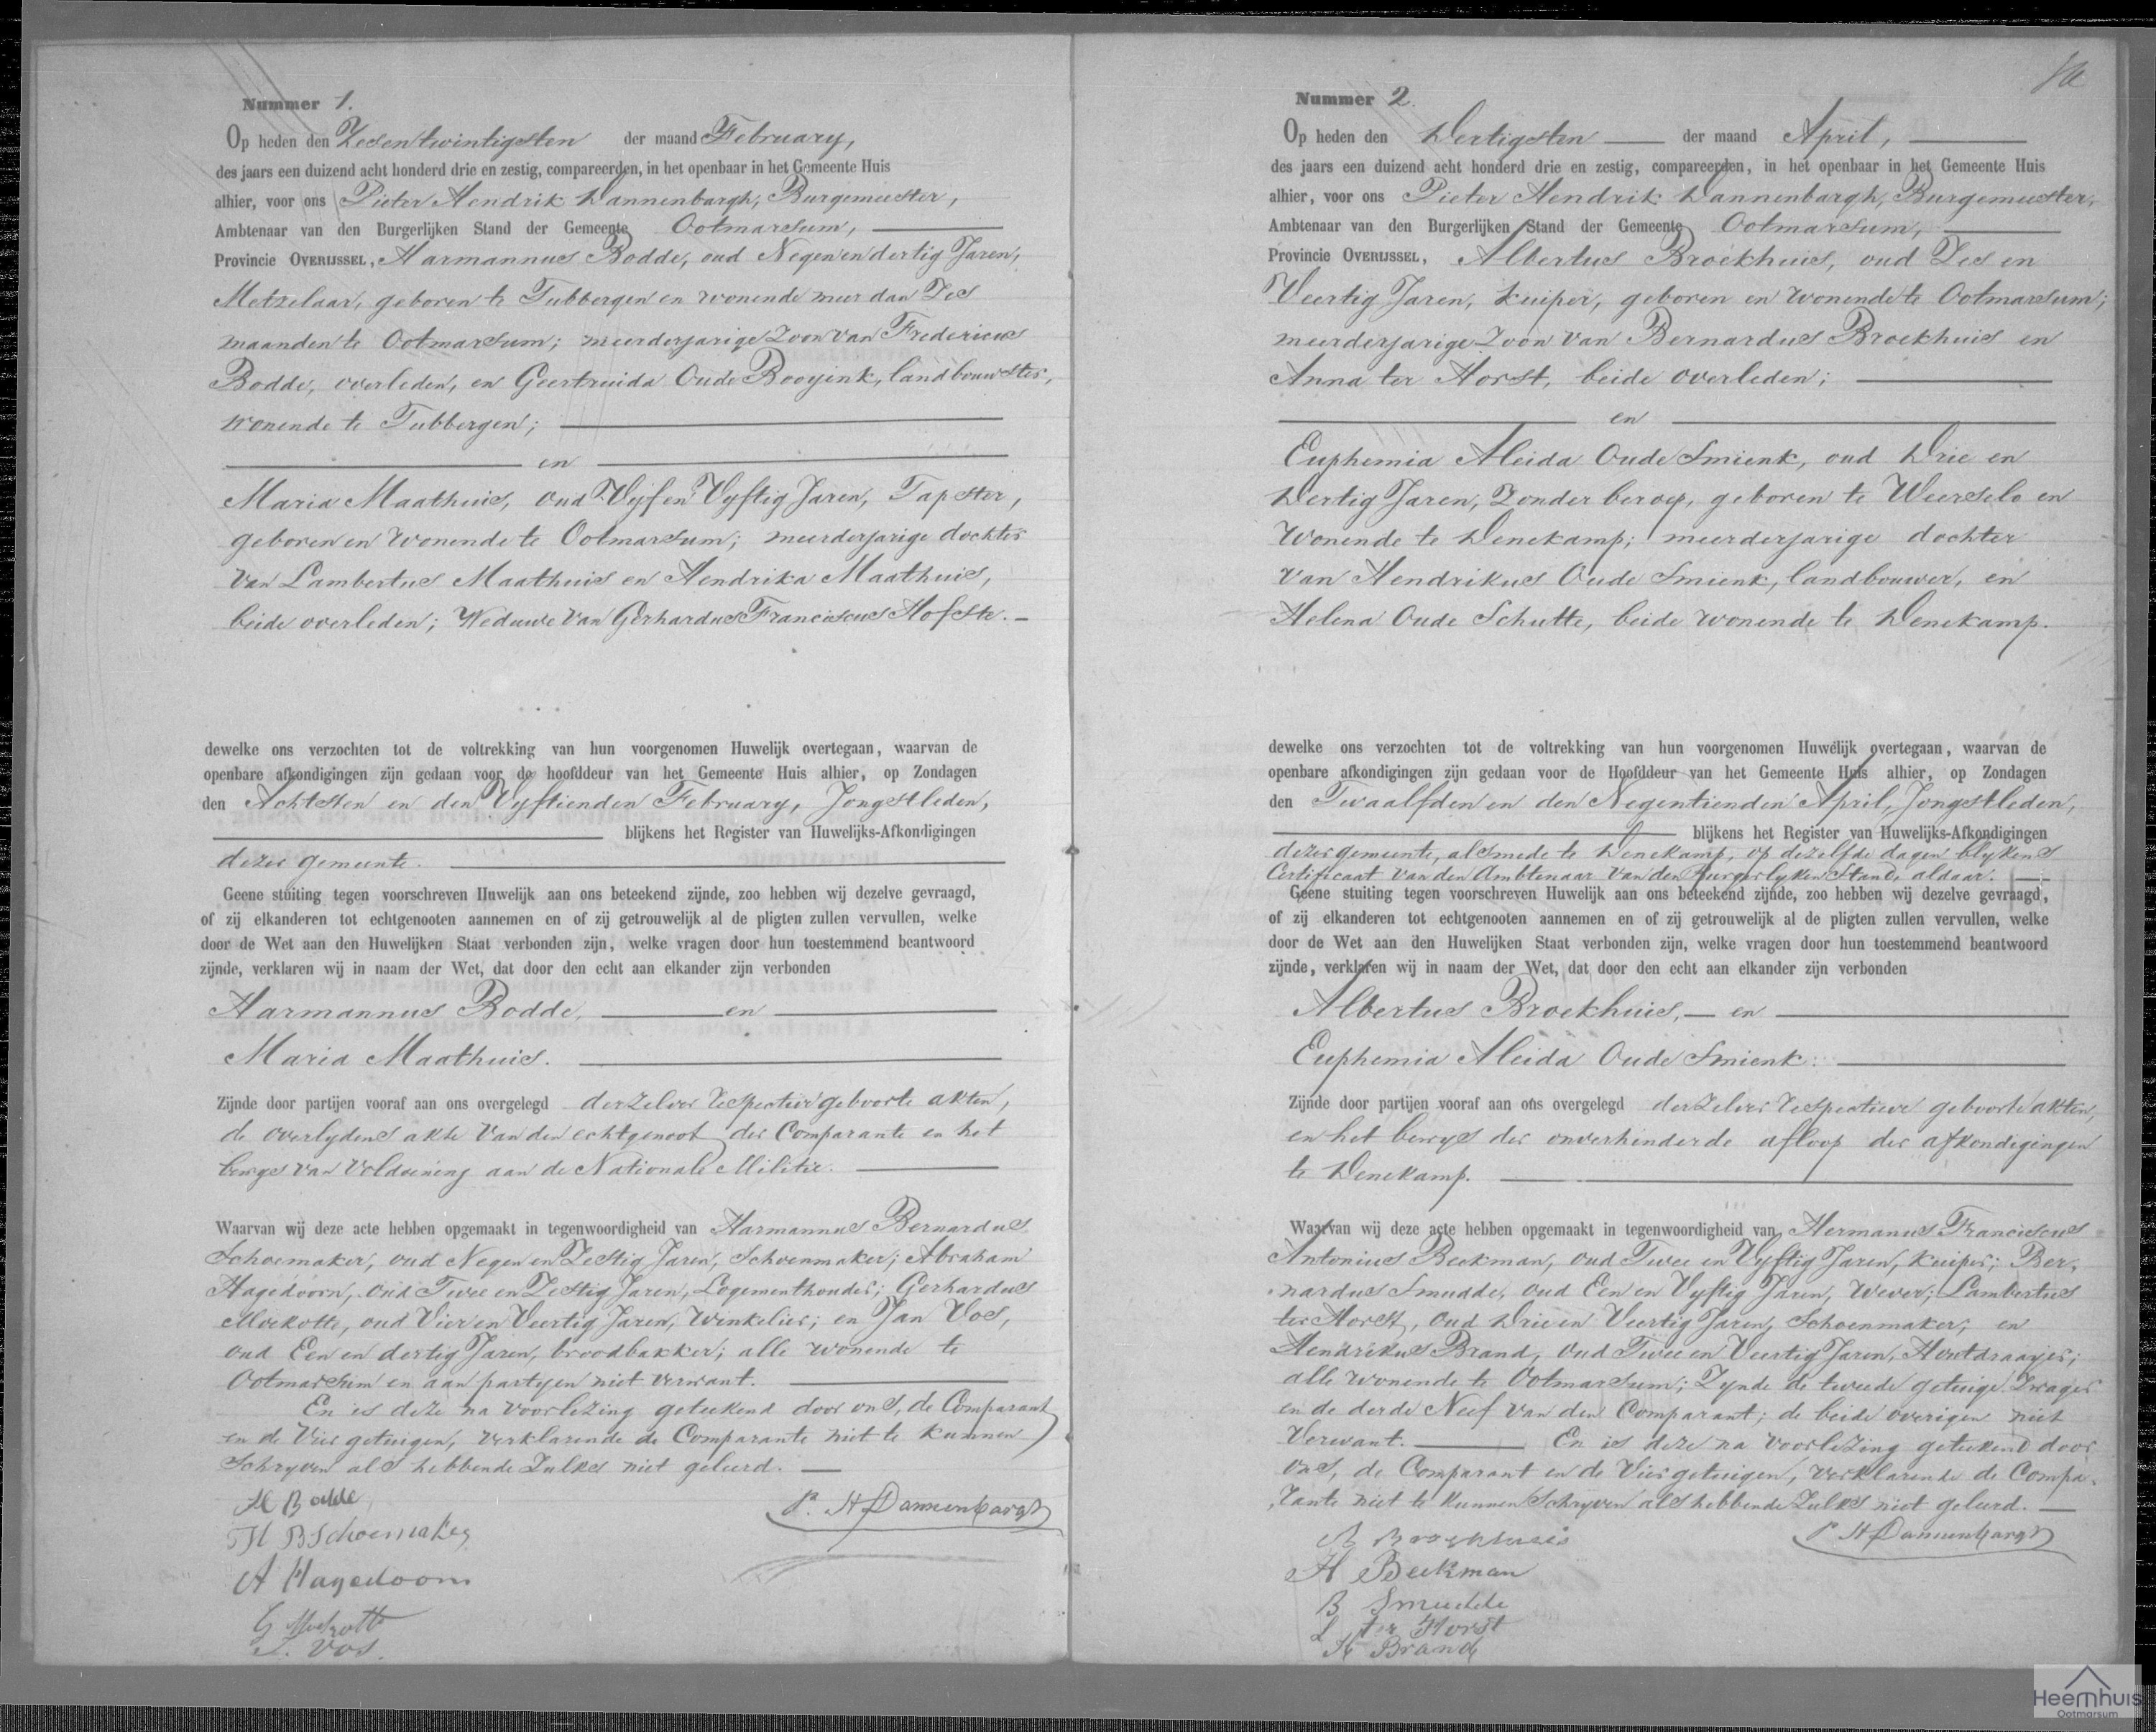 Nummer 1.
Op heden den Zesentwintigsten der maand February,
des jaars een duizend acht honderd drie en zestig, compareerden, in het openbaar in het Gemeente Huis
alhier, voor ons Pieter Hendrik Dannenbargh, Burgemeester,
Ambtenaar van den Burgerlijken Stand der Gemeente Ootmarsum,
Provincie OVERIJSSEL, Harmannus Bodde, oud Negen en dertig Jaren,
Metzelaar, geboren te Tubbergen en wonende meer dan Zes
maanden te Ootmarsum; meerderjarige Zoon van Fredericus
Bodde, overleden, en Geertruida Oude Booyink, landbouwster,
wonende te Tubbergen;
en
Maria Maathuis, oud Vijf en Vyftig Jaren, Tapster,
geboren en Wonende te Ootmarsum; meerderjarige dochter
Van Lambertus Maathuis en Hendrika Maathuis,
beide overleden; Weduwe van Gerhardus Franciscus Hofste.
dewelke ons verzochten tot de voltrekking van hun voorgenomen Huwelijk overtegaan, waarvan de
openbare afkondigingen zijn gedaan voor de hoofddeur van het Gemeente Huis alhier, op Zondagen
den Achtsten en den Vyftienden February, Jongstleden,
blijkens het Register van Huwelijks-Afkondigingen
dezer gemeente.
Geene stuiting tegen voorschreven Huwelijk aan ons beteekend zijnde, zoo hebben wij dezelve gevraagd,
of zij elkanderen tot echtgenooten aannemen en of zij getrouwelijk al de pligten zullen vervullen, welke
door de Wet aan den Huwelijken Staat verbonden zijn, welke vragen door hun toestemmend beantwoord
zijnde, verklaren wij in naam der Wet, dat door den echt aan elkander zijn verbonden
Harmannus Bodde, en
Maria Maathuis.
Zijnde door partijen vooraf aan ons overgelegd derzelver respectieve geboorte akten,
de overlydens akte van den echtgenoot der Comparante en het
bewys van Voldoening aan de Nationale Militie.
Waarvan wij deze acte hebben opgemaakt in tegenwoordigheid van Harmannus Bernardus
Schoemaker, oud Negen en Zestig Jaren, Schoenmaker; Abraham
Hagedoorn, oud Twee en Zestig Jaren, Logementhouder; Gerhardus
Moekotte, oud Vier en Veertig Jaren, Winkelier; en Jan Vos,
oud Een en dertig Jaren, broodbakker; alle wonende te
Ootmarsum en aan partyen niet verwant.
En is deze na voorlezing geteekend door ons, de Comparant
en de Vier getuigen, verklarende de Comparante niet te kunnen
Schryven als hebbende Zulks niet geleerd.
H Bodde
P. H Dannenbargh
H B Schoemaker
A Hagedoorn
G Moekotte
J. Vos.
Nummer 2.
Op heden den Dertigsten der maand April,
des jaars een duizend acht honderd drie en zestig, compareerden, in het openbaar in het Gemeente Huis
alhier, voor ons Pieter Hendrik Dannenbargh, Burgemeester,
Ambtenaar van den Burgerlijken Stand der Gemeente Ootmarsum,
Provincie OVERIJSSEL, Albertus Broekhuis, oud Zes en
Veertig Jaren, Kuiper, geboren en Wonende te Ootmarsum;
meerderjarige Zoon van Bernardus Broekhuis en
Anna ter Horst, beide overleden;
en
Euphemia Aleida Oude Smienk, oud Drie en
Dertig Jaren, Zonder beroep, geboren te Weerselo en
Wonende te Denekamp; meerderjarige dochter
van Hendrikus Oude Smienk, landbouwer, en
Helena Oude Schutte, beide wonende te Denekamp.
dewelke ons verzochten tot de voltrekking van hun voorgenomen Huwelijk overtegaan, waarvan de
openbare afkondigingen zijn gedaan voor de Hoofddeur van het Gemeente Huis alhier, op Zondagen
den Twaalfden en den Negentienden April, Jongstleden,
blijkens het Register van Huwelijks-Afkondigingen
dezer gemeente, alsmede te Denekamp, op dezelfde dagen blykens
Certificaat van den Ambtenaar van den Burgerlyken Stand, aldaar.
Geene stuiting tegen voorschreven Huwelijk aan ons beteekend zijnde, zoo hebben wij dezelve gevraagd,
of zij elkanderen tot echtgenooten aannemen en of zij getrouwelijk al de pligten zullen vervullen, welke
door de Wet aan den Huwelijken Staat verbonden zijn, welke vragen door hun toestemmend beantwoord
zijnde, verklaren wij in naam der Wet, dat door den echt aan elkander zijn verbonden
Albertus Broekhuis, en
Euphemia Aleida Oude Smienk.
Zijnde door partijen vooraf aan ons overgelegd derzelver respectieve geboorte akten,
en het bewys der onverhinderde afloop der afkondigingen
te Denekamp.
Waarvan wij deze acte hebben opgemaakt in tegenwoordigheid van Hermanus Franciscus
Antonius Beekman, oud Twee en Vyftig Jaren, Kuiper; Ber-
nardus Smudde, oud Een en Vyftig Jaren, Wever; Lambertus
ter Horst, oud Drie en Veertig Jaren, Schoenmaker; en
Hendrikus Brand, oud Twee en Veertig Jaren, Houtdraayer;
alle wonende te Ootmarsum; Zynde de tweede getuige Zwager
en de derde Neef van den Comparant; de beide overigen niet
Verwant. En is deze na voorlezing geteekend door
ons, de Comparant en de Vier getuigen, verklarende de Compa-
rante niet te kunnen Schryven als hebbende Zulks niet geleerd.
A Broekhuis
P. H Dannenbargh
H Beekman
B Smudde
L ter Horst
H Brand
Heemhuis
Ootmarsum